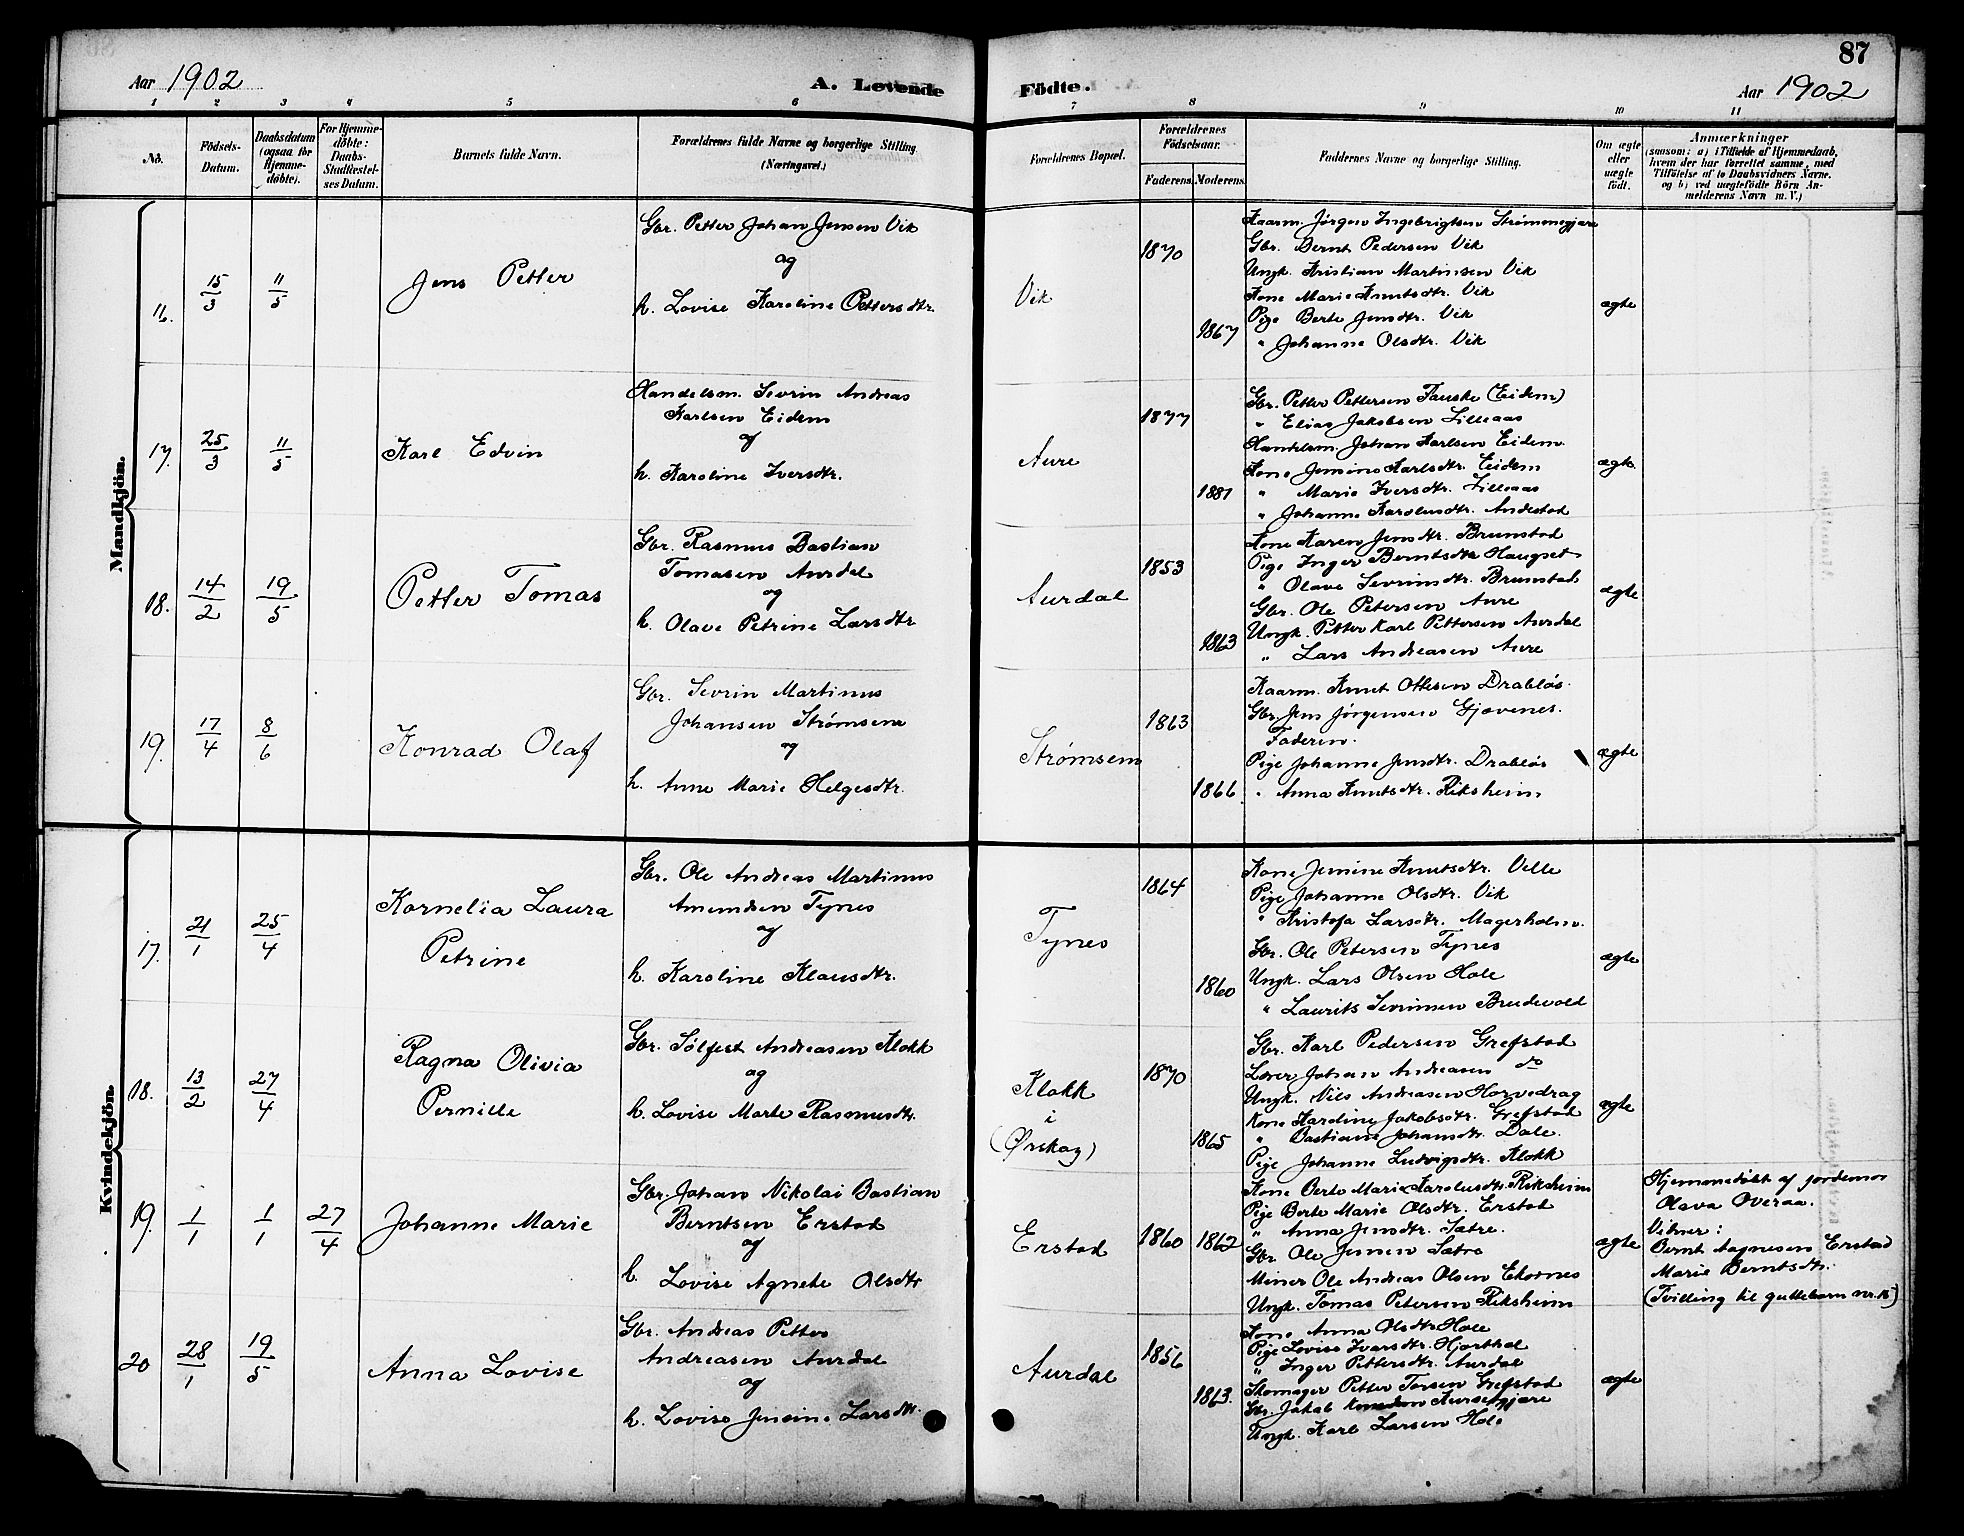 87
Aar 1902
A. Levende Födte.
Aar 1902
1 2 3 4 5 6 7 8 9 10 11
No.
Födsels-Datum.
Daabsdatum (ogsaa for Hjemme-döbte).
For Hjemme-döbte: Daabs-Stadfæstel-ses Datum.
Barnets fulde Navn.
Forældrenes fulde Navne og borgerlige Stilling. (Næringsvei.)
Forældrenes Bopæl.
Forældrenes Födselsaar.
Faderens. Moderens.
Faddernes Navne og borgerlige Stilling.
Om ægte eller uægte födt.
Anmærkninger
(saasom: a) i Tilfælde af Hjemmedaab, hvem der har forrettet samme, med Tilföielse af to Daabsvidners Navne. og b) ved uægtefödte Börn An-melderens Navn m. V.)
Mandkjön.
16. 15/3 11/5
Jens Petter
Gbr. Petter Johan Jensen Vik
og
h. Lovise Karoline Pettersdtr.
Vik
1870
1867
Kaarm. Jørgen Ingebrigtsen Strømmegjære
Gbr. Bernt Pedersen Vik
Ungk. Kristian Martinsen Vik
Kone Marie Knutsdtr. Vik
Pige Berte Jensdtr. Vik
" Johanne Olsdtr. Vik
ægte
17. 25/3 11/5
Karl Edvin
Handelsm. Sevrin Andreas
Karlsen Eidem
og
h. Karoline Iversdtr.
Aure
1877
1881
Gbr. Petter Pettersen Fauske (Eidem)
" Elias Jakobsen Lilleaas
Handelsm. Johan Karlsen Eidem
Kone Jensine Karlsdtr. Eidem
" Marie Iversdtr. Lilleaas
" Johanne Karolusdtr. Andestad
ægte
18. 14/2 19/5
Petter Tomas
Gbr. Rasmus Bastian
Tomasen Aurdal
og
h. Olave Petrine Larsdtr
Aurdal
1853
1863
Kone Karen Jensdtr. Brunstad
Pige Inger Berntsdtr Haugset
" Olave Sevrinsdtr. Brunstad
Gbr. Ole Petersen Aure
Ungk. Petter Karl Pettersen Aurdal
" Lars Andreasen Aure
ægte
19. 17/4 8/6
Konrad Olaf
Gbr. Sevrin Martinus
Johansen Strømsem
og
h. Anne Marie Helgesdtr.
Strømsem
1863
1866
Kaarm. Knut Ottesen Drabløs.
Gbr. Jens Jørgensen Gjævenes.
Faderen.
Pige Johanne Jensdtr. Drabløs
" Anna Knutsdtr. Riksheim
ægte
Kvindekjön.
17. 21/1 25/4
Kornelia Laura
Petrine
Gbr. Ole Andreas Martinus
Amundsen Tynes
og
h. Karoline Klausdtr.
Tynes
1864
1860
Kone Jensine Knutsdtr. Velle
Pige Johanne Olsdtr. Vik
" Kristofa Larsdtr. Magerholm.
Gbr. Ole Petersen Tynes
Ungk. Lars Olsen Hole
" Laurits Sevrinsen Brudevold
ægte
18. 13/2 27/4
Ragna Olivia
Pernille
Gbr. Sølfest Andreasen Klokk
og
h. Lovise Marte Rasmusdtr.
Klokk
i
(Ørskog)
1870
1865
Gbr. Karl Pedersen Grefstad
Lærer Johan Andreasen do
Ungk. Nils Andreasen Horvedrag
Kone Karoline Jakobsdtr. Grefstad
" Bastiane Johansdtr. Dale.
Pige Johanne Ludvigsdtr. Klokk
ægte
19. 1/1 1/1 27/4
Johanne Marie
Gbr. Johan Nikolai Bastian
Berntsen Erstad
og
h. Lovise Agnete Olsdtr
Erstad
1860 1862
Kone Berte Marie Karolusdtr. Riksheim
Pige Berte Marie Olsdtr. Erstad
" Anna Jensdtr. Sætre.
Gbr Ole Jensen Sætre
Miner Ole Andreas Olsen Ekornes
Ungk. Tomas Petersen Riksheim
ægte
Hjemmedøbt af jordemor
Olava Overaa.
Vitner:
Bernt Aagnesen Erstad
Marie Berntsdtr.
(Tvilling til guttebarn nr. 15)
20 28/1 19/5
Anna Lovise
Gbr. Andreas Petter
Andreasen Aurdal
og
h. Lovise Jensine Larsdtr.
Aurdal
1856
1863.
Kone Anna Olsdtr Hole
Pige Lovise Ivarsdtr. Hjorthol
" Inger Pettersdtr. Aurdal
Skomager Petter Torsen Grefstad
Gbr. Jakob Knudsen Kursetgjære
Ungk. Karl Larsen Hole
ægte